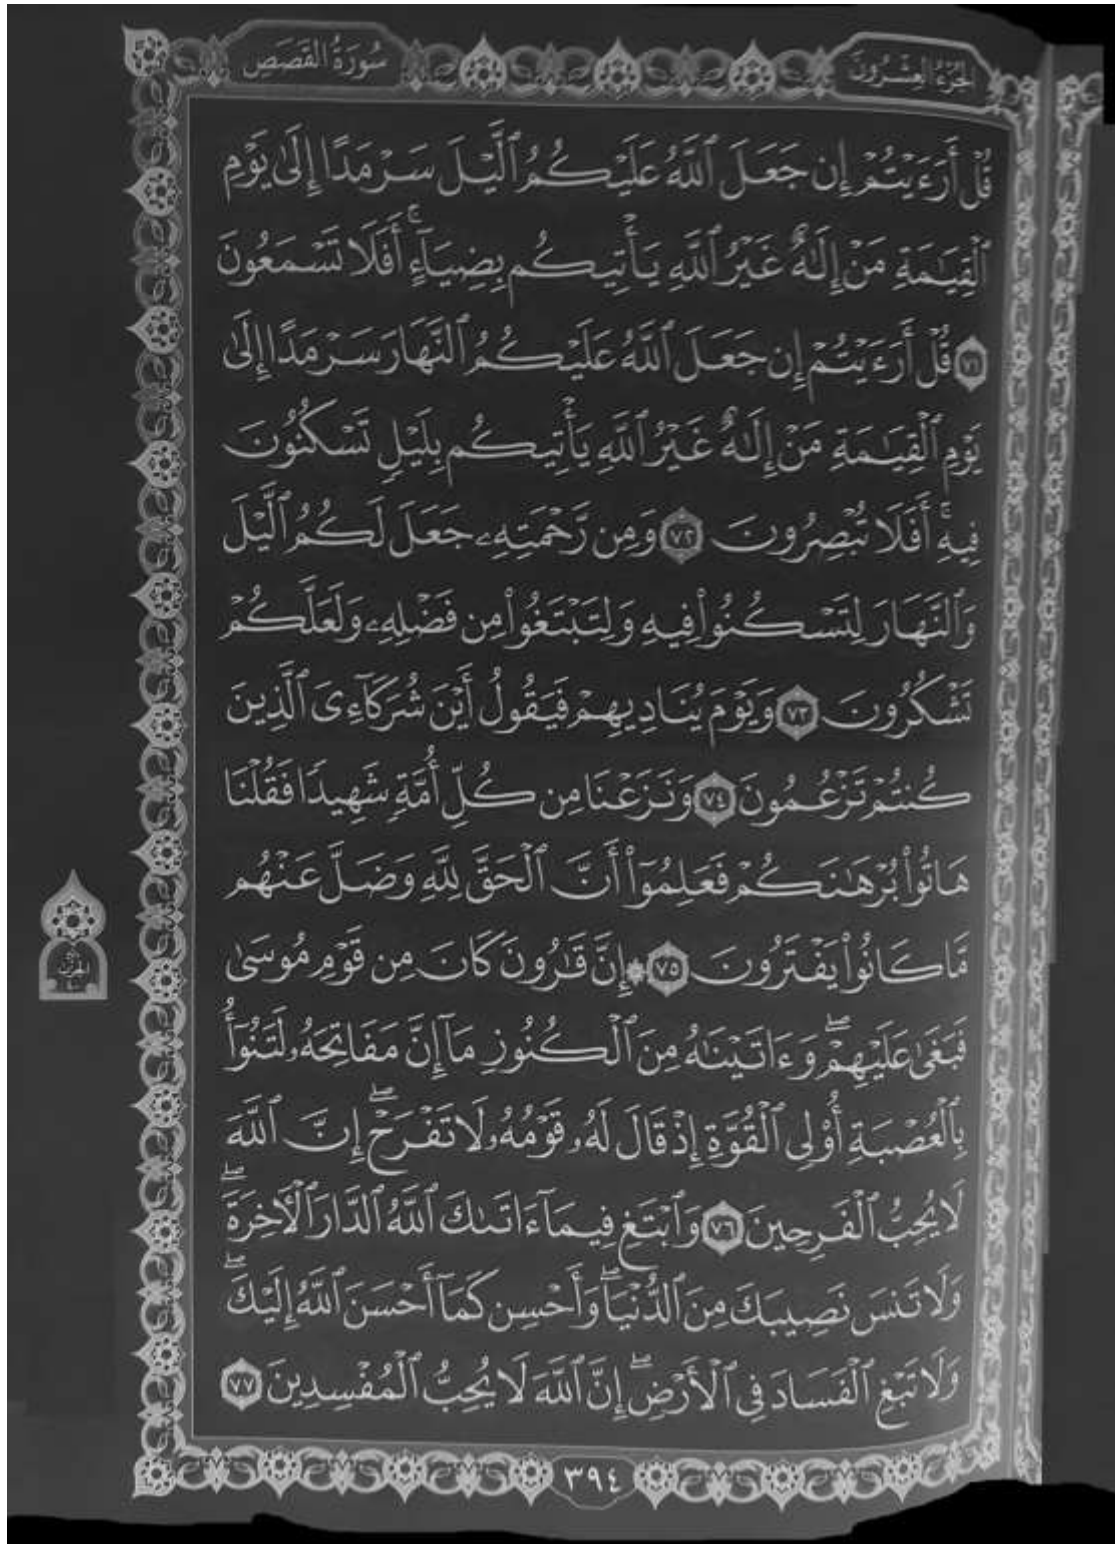 الجزء العشرون
سورة القصص
قُلْ أَرَءَيْتُمْ إِن جَعَلَ ٱللَّهُ عَلَيْكُمُ ٱلَّيْلَ سَرْمَدًا إِلَىٰ يَوْمِ
ٱلْقِيَٰمَةِ مَنْ إِلَٰهٌ غَيْرُ ٱللَّهِ يَأْتِيكُم بِضِيَآءٍۚ أَفَلَا تَسْمَعُونَ
٧١ قُلْ أَرَءَيْتُمْ إِن جَعَلَ ٱللَّهُ عَلَيْكُمُ ٱلنَّهَارَ سَرْمَدًا إِلَىٰ
يَوْمِ ٱلْقِيَٰمَةِ مَنْ إِلَٰهٌ غَيْرُ ٱللَّهِ يَأْتِيكُم بِلَيْلٍ تَسْكُنُونَ
فِيهِۚ أَفَلَا تُبْصِرُونَ ٧٢ وَمِن رَّحْمَتِهِۦ جَعَلَ لَكُمُ ٱلَّيْلَ
وَٱلنَّهَارَ لِتَسْكُنُوا۟ فِيهِ وَلِتَبْتَغُوا۟ مِن فَضْلِهِۦ وَلَعَلَّكُمْ
تَشْكُرُونَ ٧٣ وَيَوْمَ يُنَادِيهِمْ فَيَقُولُ أَيْنَ شُرَكَآءِىَ ٱلَّذِينَ
كُنتُمْ تَزْعُمُونَ ٧٤ وَنَزَعْنَا مِن كُلِّ أُمَّةٍ شَهِيدًا فَقُلْنَا
هَاتُوا۟ بُرْهَٰنَكُمْ فَعَلِمُوٓا۟ أَنَّ ٱلْحَقَّ لِلَّهِ وَضَلَّ عَنْهُم
مَّا كَانُوا۟ يَفْتَرُونَ ٧٥ ۞ إِنَّ قَٰرُونَ كَانَ مِن قَوْمِ مُوسَىٰ
فَبَغَىٰ عَلَيْهِمْۖ وَءَاتَيْنَٰهُ مِنَ ٱلْكُنُوزِ مَآ إِنَّ مَفَاتِحَهُۥ لَتَنُوٓأُ
بِٱلْعُصْبَةِ أُو۟لِى ٱلْقُوَّةِ إِذْ قَالَ لَهُۥ قَوْمُهُۥ لَا تَفْرَحْۖ إِنَّ ٱللَّهَ
لَا يُحِبُّ ٱلْفَرِحِينَ ٧٦ وَٱبْتَغِ فِيمَآ ءَاتَىٰكَ ٱللَّهُ ٱلدَّارَ ٱلْءَاخِرَةَۖ
وَلَا تَنسَ نَصِيبَكَ مِنَ ٱلدُّنْيَاۖ وَأَحْسِن كَمَآ أَحْسَنَ ٱللَّهُ إِلَيْكَۖ
وَلَا تَبْغِ ٱلْفَسَادَ فِى ٱلْأَرْضِۖ إِنَّ ٱللَّهَ لَا يُحِبُّ ٱلْمُفْسِدِينَ ٧٧
٣٩٤